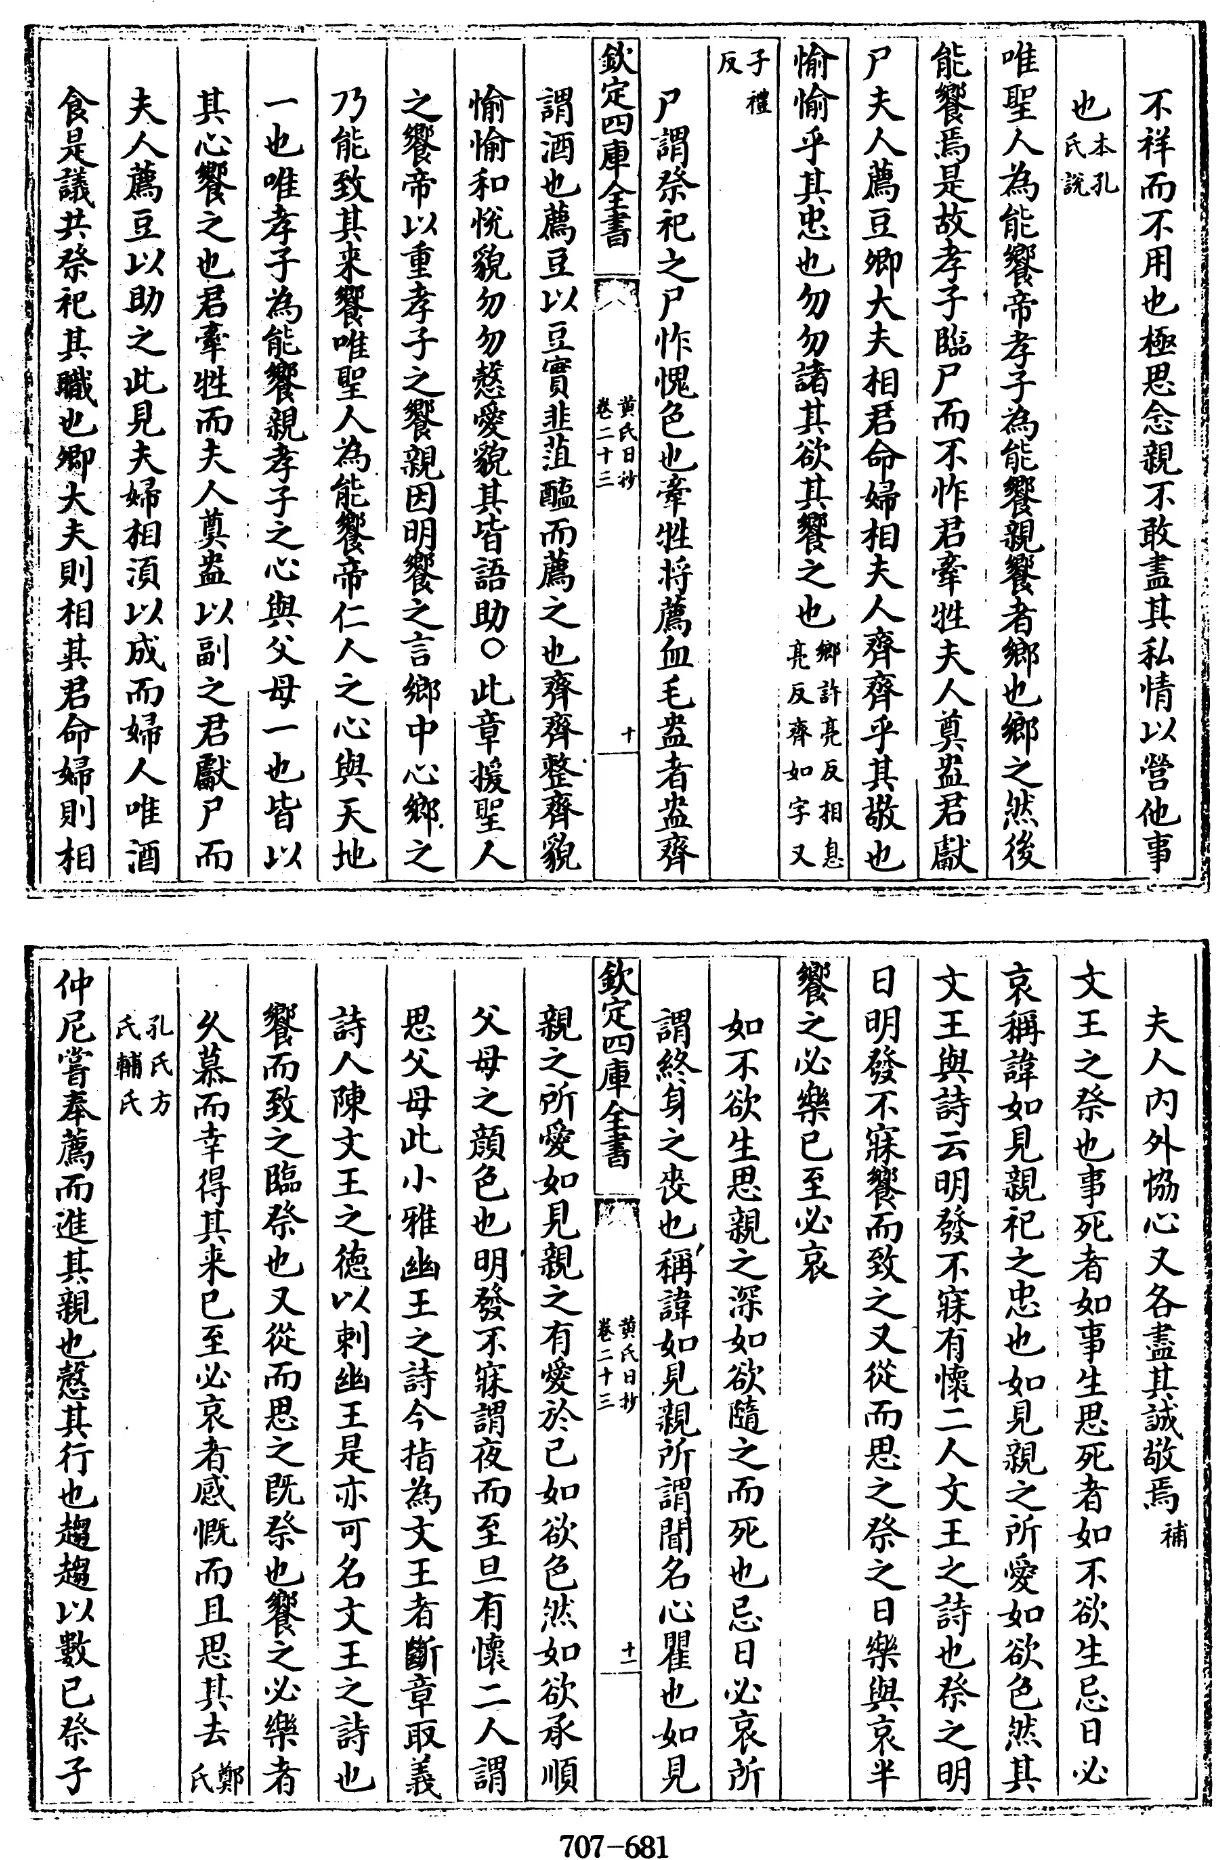 不祥而不用也極思念親不敢盡其私情以營他事
也本孔氏說
唯聖人為能饗帝孝子為能饗親饗者鄉也鄉之然後
能饗焉是故孝子臨尸而不怍君牽牲夫人奠盎君獻
尸夫人薦豆卿大夫相君命婦相夫人齊齊乎其敬也
愉愉乎其忠也勿勿諸其欲其饗之也鄉許亮反相息亮反齊如字又
子禮反
尸謂祭祀之尸怍愧色也牽牲将薦血毛盎者盎齊
欽定四庫全書 黃氏日抄卷二十三 十
謂酒也薦豆以豆實韭菹醢而薦之也齊齊整齊貌
愉愉和悅貌勿勿慤愛貌其皆語助○此章援聖人
之饗帝以重孝子之饗親因明饗之言鄉中心鄉之
乃能致其来饗唯聖人為能饗帝仁人之心與天地
一也唯孝子為能饗親孝子之心與父母一也皆以
其心饗之也君牽牲而夫人奠盎以副之君獻尸而
夫人薦豆以助之此見夫婦相須以成而婦人唯酒
食是議共祭祀其職也卿大夫則相其君命婦則相
夫人內外恊心又各盡其誠敬焉補
文王之祭也事死者如事生思死者如不欲生忌日必
哀稱諱如見親祀之忠也如見親之所愛如欲色然其
文王與詩云明發不寐有懷二人文王之詩也祭之明
日明發不寐饗而致之又從而思之祭之日樂與哀半
饗之必樂已至必哀
如不欲生思親之深如欲隨之而死也忌日必哀所
謂終身之喪也稱諱如見親所謂聞名心瞿也如見
欽定四庫全書 黃氏日抄卷二十三 十一
親之所愛如見親之有愛於己如欲色然如欲承順
父母之顔色也明發不寐謂夜而至旦有懷二人謂
思父母此小雅幽王之詩今指為文王者斷章取義
詩人陳文王之德以刺幽王是亦可名文王之詩也
饗而致之臨祭也又從而思之既祭也饗之必樂者
久慕而幸得其来已至必哀者感慨而且思其去鄭氏
孔氏方氏輔氏
仲尼嘗奉薦而進其親也慤其行也趨趨以數已祭子
707-681